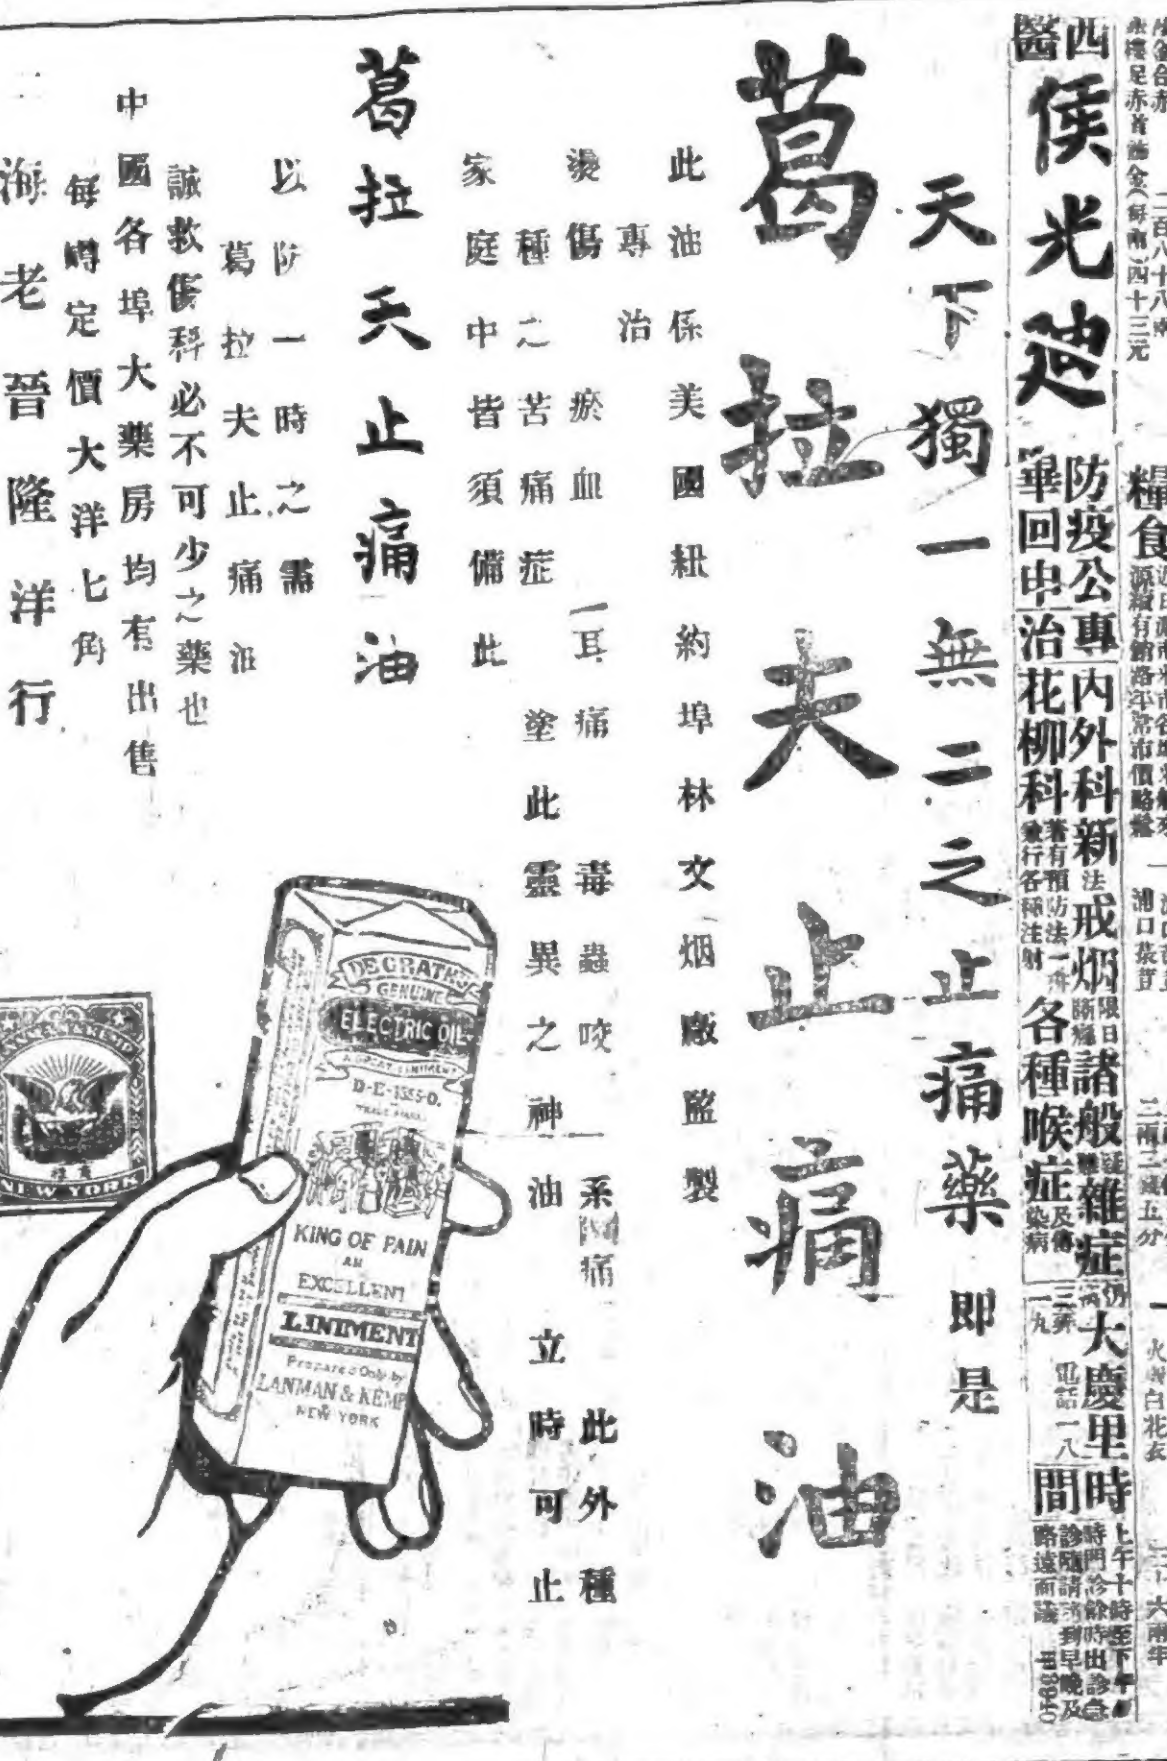 西醫
侯光迪
防疫公畢回申
專治
內外科新法
花柳科
著有預防法一冊
發行各種注射
戒烟
限日斷癮
諸般
雜症
各種喉症
及傳染病
大慶里
三弄
一九
電話一八
時間
上午十時至下午
時門診餘時出診急
診隨請隨到早晚及
路遠面議
糧食
天下獨一無二之止痛藥即是
葛拉夫止痛油
此油係美國紐約埠林文烟廠監製
專治
燙傷 瘀血 耳痛 毒蟲咬 痛 此外種
種之苦痛症 塗此靈異之神油 立時可止
家庭中皆須備此
葛拉夫止痛油
以防一時之需
葛拉夫止痛油
誠救傷科必不可少之藥也
中國各埠大藥房均有出售
每罇定價大洋七角
海老晉隆洋行
DE GRATH'S
GENUINE
ELECTRIC OIL
A GREAT LINIMENT
TRADE MARK
KING OF PAIN
AN
EXCELLENT
LINIMENT
Prepared Only by
LANMAN & KEMP
NEW YORK
LANMAN & KEMP
NEW YORK